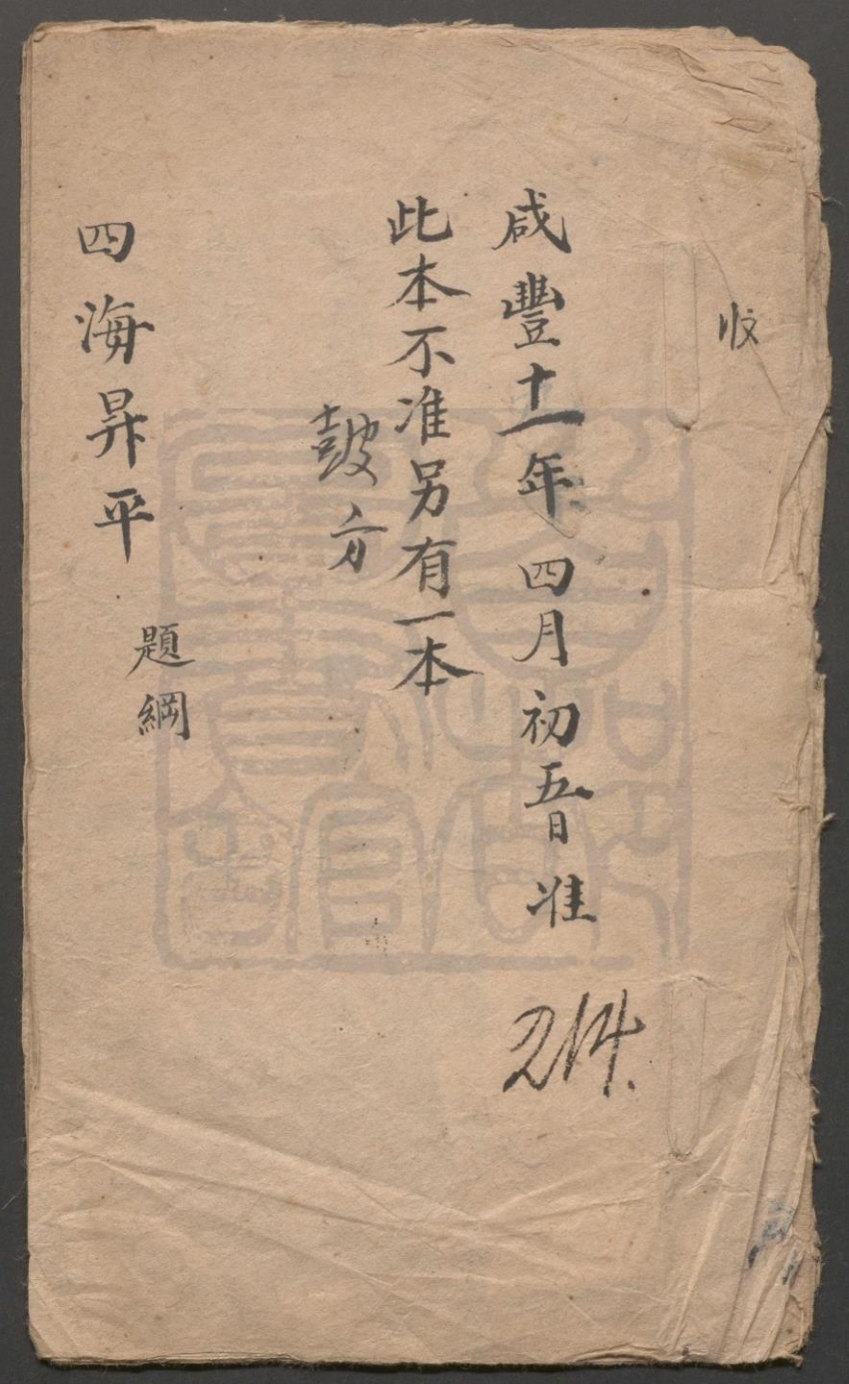 收
咸豐十一年四月初五日准
此本不准另有一本
鼓方
四海昇平
題綱
214.